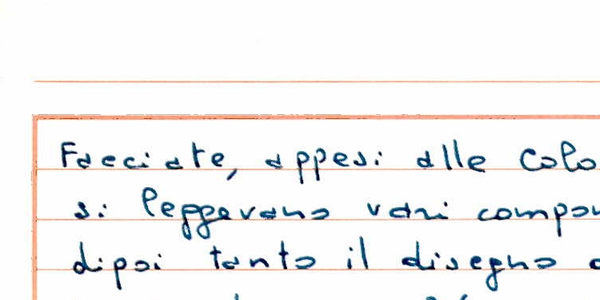 Facciate, appesi alle colo
si leggevano vari compo
dipoi tanto il disegno